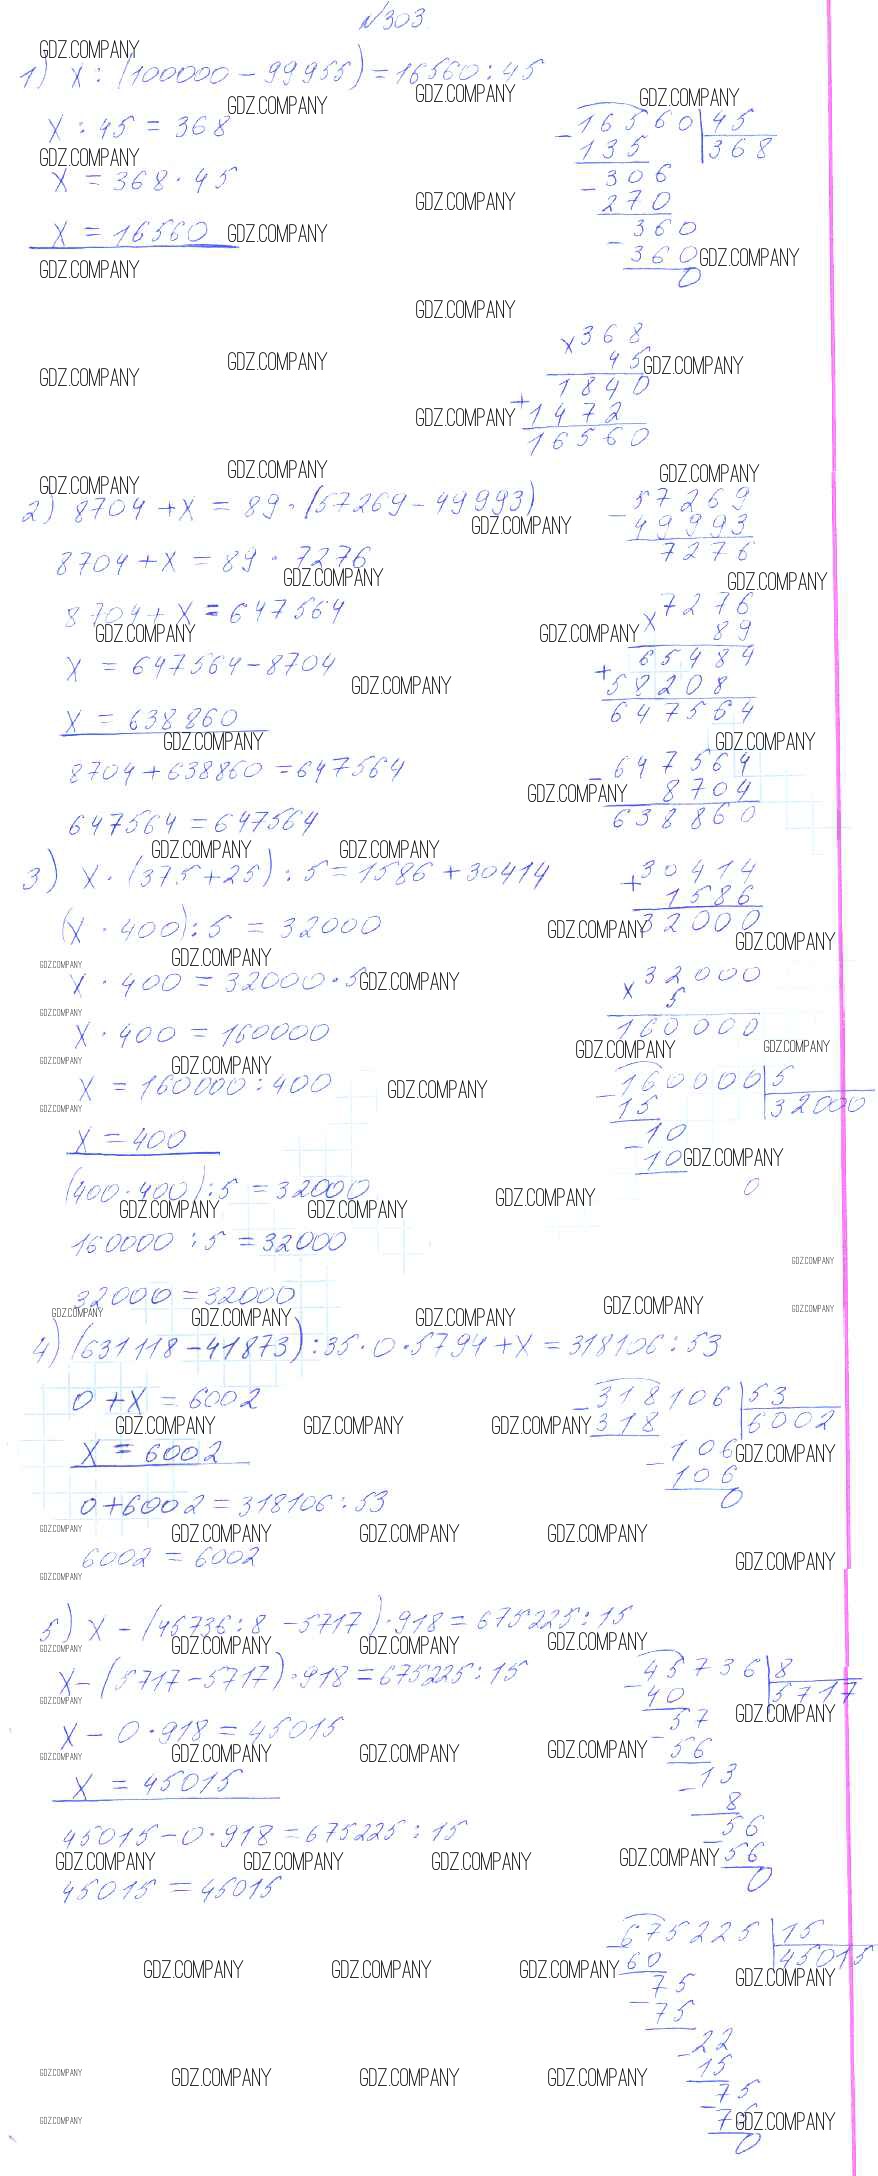 №303
1) x : (100000 - 99955) = 16560 : 45
x : 45 = 368
x = 368 · 45
x = 16560
- 16560 | 45
135 | 368
- 306
270
- 360
360
0
x 368
45
+ 1840
1472
16560
2) 8704 + x = 89 · (57269 - 49993)
8704 + x = 89 · 7276
8704 + x = 647564
x = 647564 - 8704
x = 638860
8704 + 638860 = 647564
647564 = 647564
- 57269
49993
7276
x 7276
89
+ 65484
58208
647564
- 647564
8704
638860
3) x · (375 + 25) : 5 = 1586 + 30414
(x · 400) : 5 = 32000
x · 400 = 32000 · 5
x · 400 = 160000
x = 160000 : 400
x = 400
(400 · 400) : 5 = 32000
160000 : 5 = 32000
32000 = 32000
+ 30414
1586
32000
x 32000
5
160000
- 160000 | 5
15 | 32000
- 10
10
0
4) (631118 - 41873) : 35 · 0 · 5794 + x = 318106 : 53
0 + x = 6002
x = 6002
0 + 6002 = 318106 : 53
6002 = 6002
- 318106 | 53
318 | 6002
- 106
106
0
5) x - (45736 : 8 - 5717) · 918 = 675225 : 15
x - (5717 - 5717) · 918 = 675225 : 15
x - 0 · 918 = 45015
x = 45015
45015 - 0 · 918 = 675225 : 15
45015 = 45015
- 45736 | 8
40 | 5717
- 57
56
- 13
8
- 56
56
0
- 675225 | 15
60 | 45015
- 75
75
- 22
15
- 75
75
0
GDZ.COMPANY